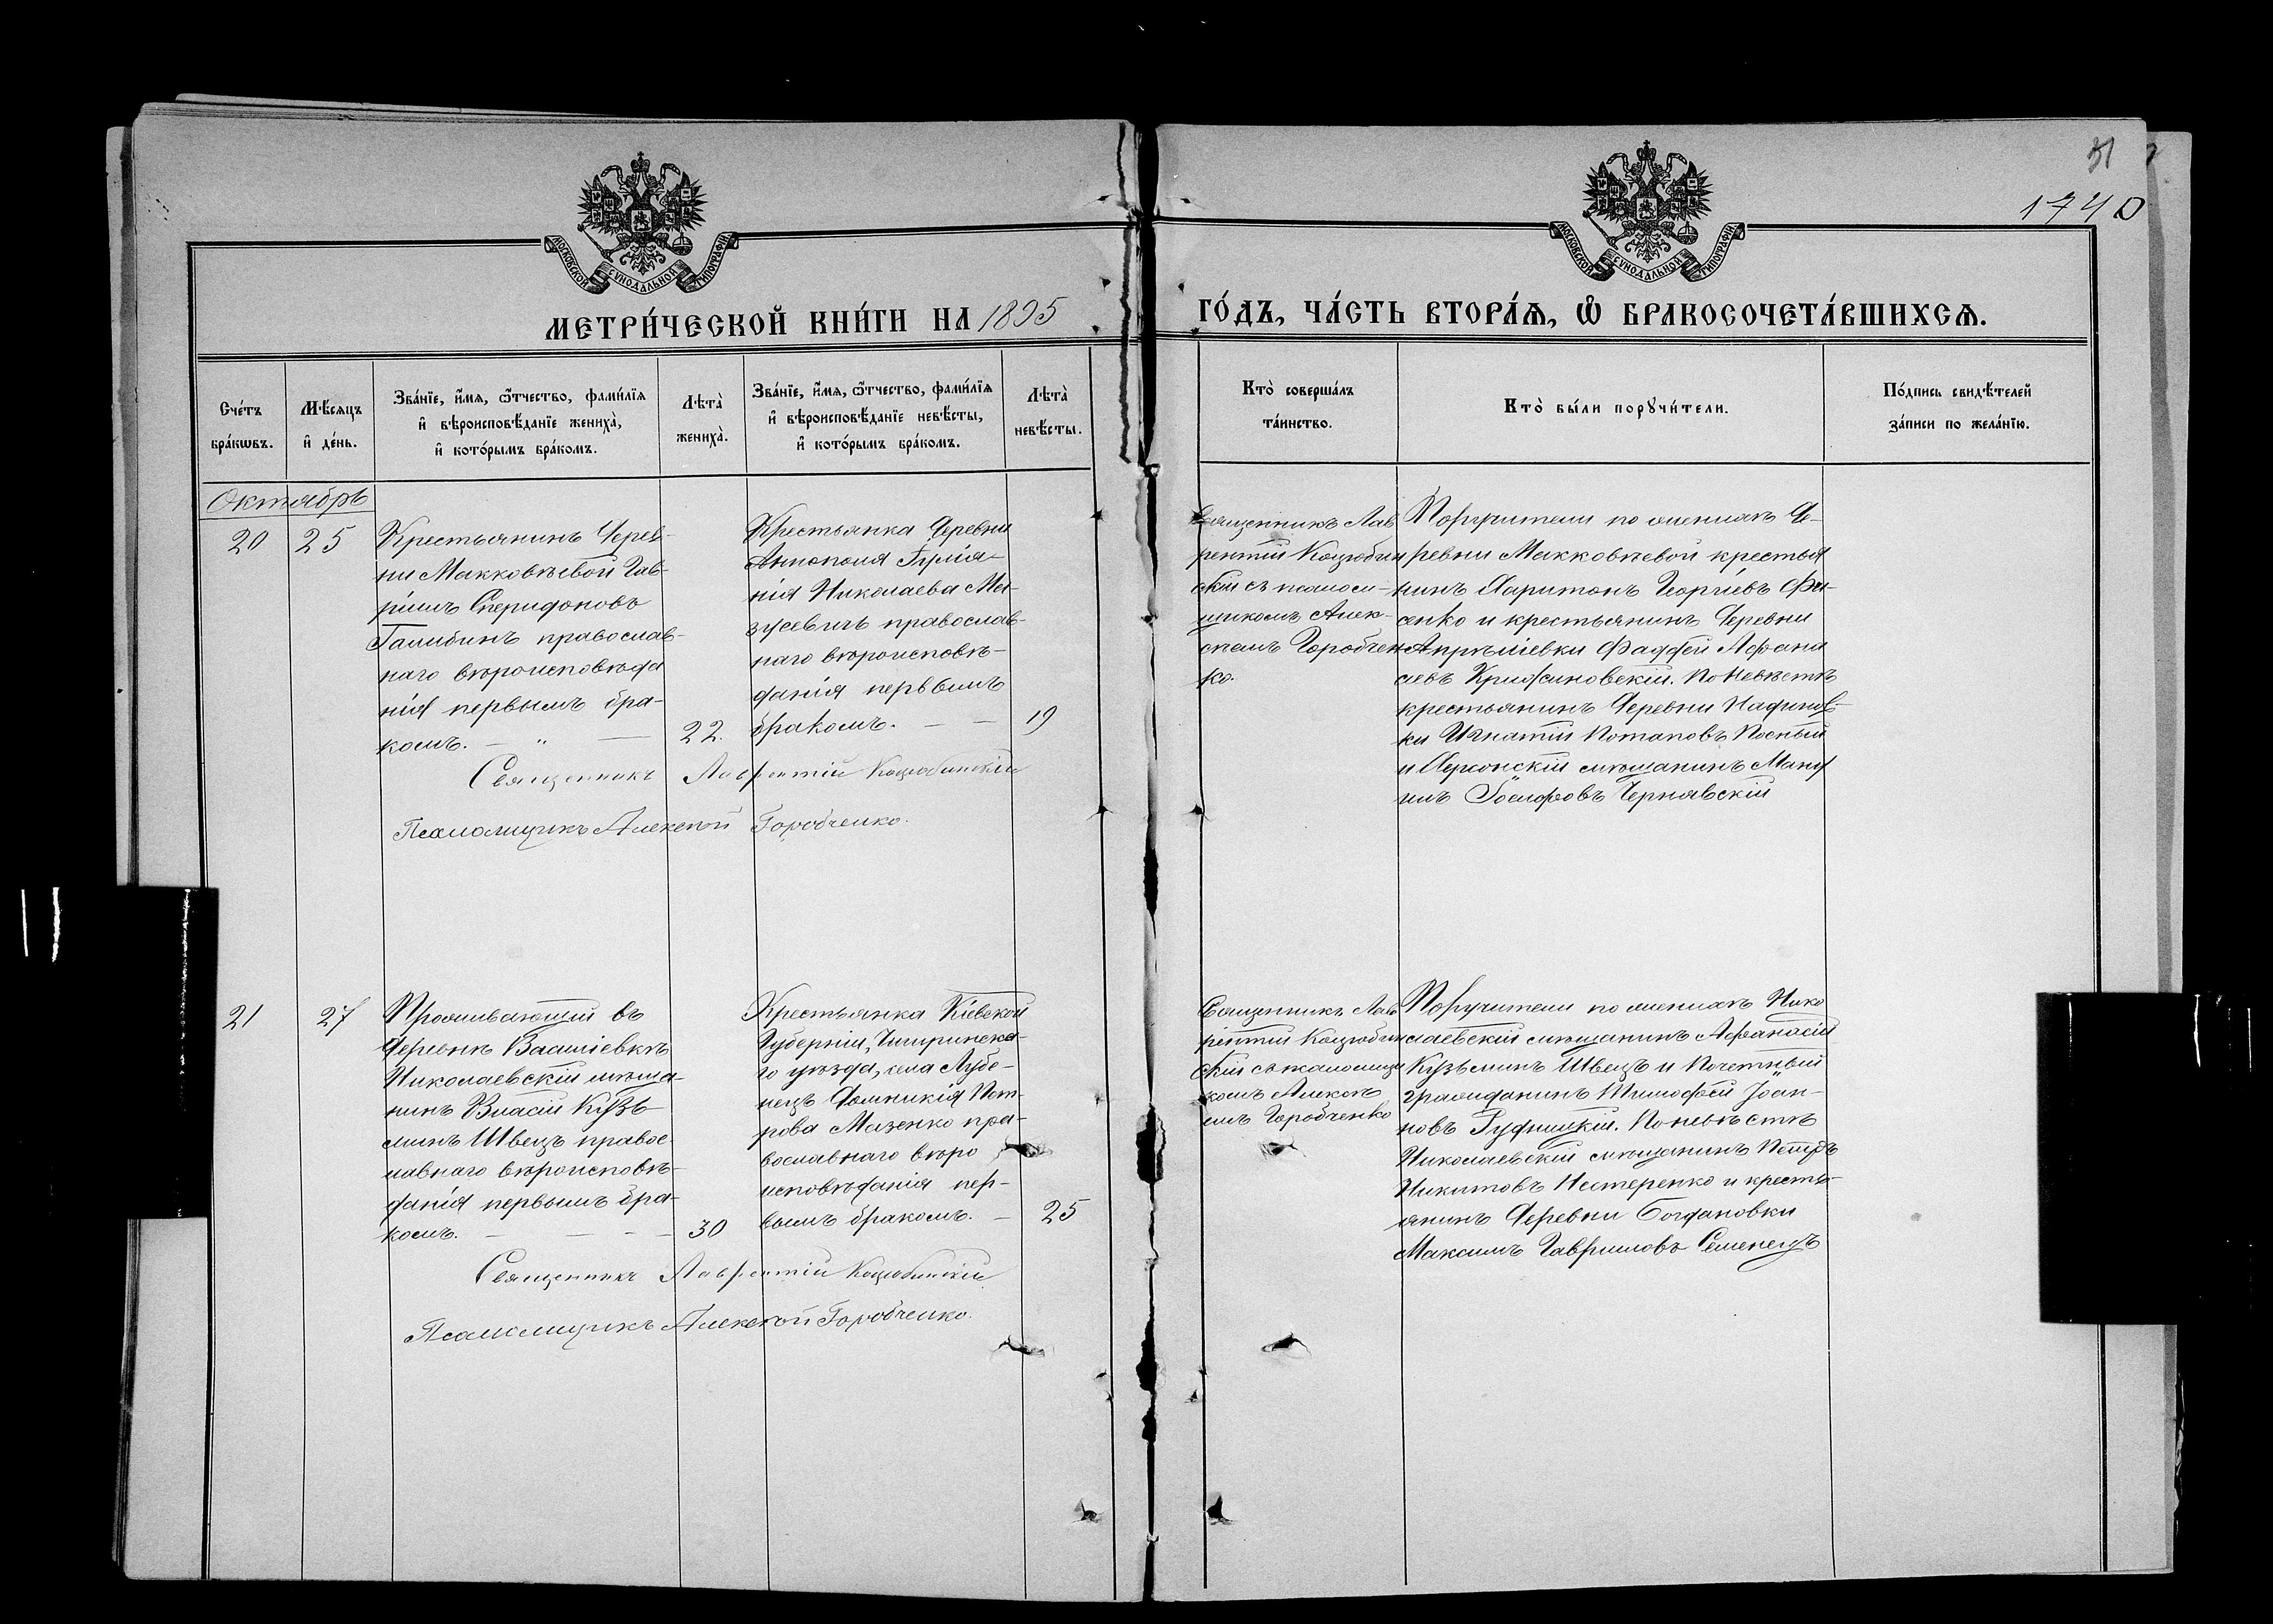 31
1740
МОСКОВСКОЙ СУНОДАЛЬНОЙ ТИПОГРАФІИ
МОСКОВСКОЙ СУНОДАЛЬНОЙ ТИПОГРАФІИ
МЕТРИ́ЧЕСКОЙ КНИ́ГИ НА 1895
ГО́ДЪ, ЧА́СТЬ ВТОРА́Я, Ѡ҆ БРАКОСОЧЕТА́ВШИХСЯ.
Сче́тъ
бра́кѡвъ.
Мѣ́сяцъ
и҆ де́нь.
Зва́нїе, и҆́мя, ѻ҆́тчество, фами́лїя
и҆ вѣроисповѣ́данїе жениха̀,
и҆ кото́рымъ бра́комъ.
Лѣта̀
жениха̀.
Зва́нїе, и҆́мя, ѻ҆́тчество, фами́лїя
и҆ вѣроисповѣ́данїе невѣ́сты,
и҆ кото́рымъ бра́комъ.
Лѣта̀
невѣ́сты.
Кто̀ соверша́лъ
та́инство.
Кто̀ бы́ли порꙋчи́тели.
По́дпись свидѣ́телей
за́писи по жела́нїю.
Октябрь
20
25
Крестьянинъ Дерев-
ни Макковѣевой Гав-
ріилъ Спиридоновъ
Галибинъ православ-
наго вѣроисповѣда
нія первымъ бра-
комъ. — „ —
22.
Крестьянка Деревни
Антополя
нія Николаева Ма-
зусевичъ православ-
наго вѣроисповѣ-
данія первымъ
бракомъ. — —
19
Священникъ Лав
рентій Коцюбин
скій съ псаломщ-
щикомъ Алек-
сѣемъ Горобчен
ко.
Поручители по женихѣ Де-
ревни Макковѣевой крестья
нинъ Харитонъ Георгіевъ Фи-
сенко и крестьянинъ Деревни
Апрѣліевки Фаддей Афана
сіевъ Крижановскій. По невѣстѣ
крестьянинъ Деревни
ки Игнатій Потаповъ Поспый
и Херсонскій мѣщанинъ Ману
илъ Іосифовъ Чернявскій
Священникъ Лаврентій Коцюбинскій
Псаломщикъ Алексѣй Горобченко.
21
27
Проживающій въ
Деревнѣ Василіевкѣ
Николаевскій мѣща-
нинъ Власій Кузь
минъ Швецъ правос-
лавнаго вѣроисповѣ-
данія первымъ бра-
комъ. — — - —
30
Крестьянка Кіевской
Губерніи, Чигиринска-
го уѣзда, села Лубе-
нецъ Домникія Пет-
рова Мазенко пра-
вославнаго вѣро
исповѣданія пер-
вымъ бракомъ. —
25
Священникъ Лав
рентій Коцюбин
скій съ псаломщи
комъ Алексѣ
емъ Горобченко
Поручители по женихѣ Нико
лаевскій мѣщанинъ Афанасій
Кузьминъ Швецъ и Почетный
гражданинъ Тимофей Іоан-
новъ Рудницкій. По невѣстѣ
Николаевскій мѣщанинъ Петръ
Никитовъ Нестеренко и кресть-
янинъ Деревни Богдановки
Максимъ Гавриловъ Семенецъ
Священникъ Лаврентій Коцюбинскій
Псаломщикъ Алексѣй Горобченко.